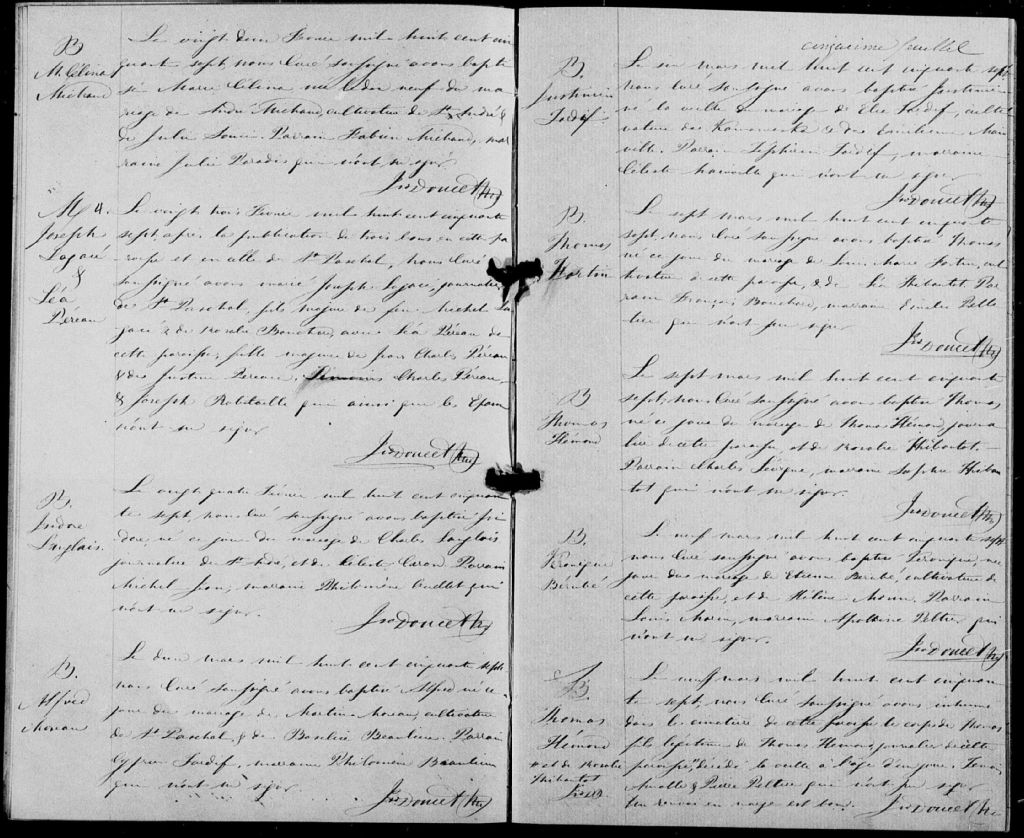 B
M. Célina
Michaud
Le vingt deux Fevrier mil huit cent cin
quante sept, nous Curé soussigné avons bapti
sé Marie Célina née le du ma
riage de André Michaud, cultivateur de St. André &
de Julie Parrain Fabien Michaud, mar
raine Julie Paradis qui n'ont su signer
Jos Doucet Ptre
M 4.
Joseph
Lagacé
&
Léa
Péreau
Le vingt trois Fevrier mil huit cent cinquante
sept, après la publication de trois bans en cette pa
roisse et en celle de St. Paschal, Nous Curé
soussigné avons marié Joseph Lagacé, journalier
de St. Paschal, fils majeur de feu Michel La
gacé & de Rosalie Bouchard, avec Léa Péreau de
cette paroisse, fille majeure de Jean Charles Péreau
& de Justine Pereau. Charles Péreau
& Joseph Robitaille qui ainsi que les Epoux
n'ont su signer
Jos Doucet Ptre
B.
Isidore
Langlais.
Le vingt quatre Fevrier mil huit cent cinquan
te sept, nous Curé soussigné avons baptisé Isi
dore, né ce jour du mariage de Charles Langlais
journalier de St. André, et de Céleste Caron. Parrain
Michel Jean, marraine Philomène Ouellet qui
n'ont su signer.
Jos Doucet Ptre
B.
Alfred
Moreau
Le deux mars mil huit cent cinquante sept
nous Curé soussigné avons baptisé Alfred né ce
jour du mariage de Martin Moreau, cultivateur
de St. Paschal, & de Basilice Beaulieu. Parrain
Cyprien Jordif, marraine Philomène Beaulieu
qui n'ont su signer.
Jos Doucet Ptre
cinquième feuillet
B.
Justinien
Jordif.
Le six mars mil huit cent cinquante sept
nous curé soussigné avons baptisé Justinien
né la veille du mariage de Elie Jordif, culti
vateur de Kamouraska & de Emilienne
Parrain Zéphirin Jordif, marraine
Céleste qui n'ont su signer
Jos Doucet Ptre
B.
Thomas
Fortin
Le sept mars mil huit cent cinquante
sept, nous Curé soussigné avons baptisé Thomas
né ce jour du mariage de Louis Marie Fortin, cul
tivateur de cette paroisse, & de Léa Thibautot. Par
rain François Bouchard, marraine Emilie Pelle
tier qui n'ont su signer
Jos Doucet Ptre
B
Thomas
Hémond
Le sept mars mil huit cent cinquante
sept, nous Curé soussigné avons baptisé Thomas
né ce jour du mariage de Thomas Hémond, journa
lier de cette paroisse et de Rosalie Thibautot.
Parrain Charles Lévêque, marraine Sophie Thibau
tot qui n'ont su signer.
Jos Doucet Ptre
B.
Véronique
Bérubé
Le neuf mars mil huit cent cinquante sept
nous Curé soussigné avons baptisé Véronique, née ce
jour du mariage de Etienne Bérubé, cultivateur de
cette paroisse, et de Hélène Morin. Parrain
Louis Morin, marraine Apolline Peltier qui
n'ont su signer.
Jos Doucet Ptre
Thomas
Hémond
de Rosalie
Thibautot
Le neuf mars mil huit cent cinquan
te sept, nous Curé soussigné avons inhumé
dans le cimetière de cette paroisse le corps de Thomas
fils légitime de Thomas Hémond, journalier de cette
paroisse, décédé la veille à l'age d'un jour. Temoins
& Pierre Peltier qui n'ont su signer
Un renvoi en marge est bon. Jos Doucet Ptre